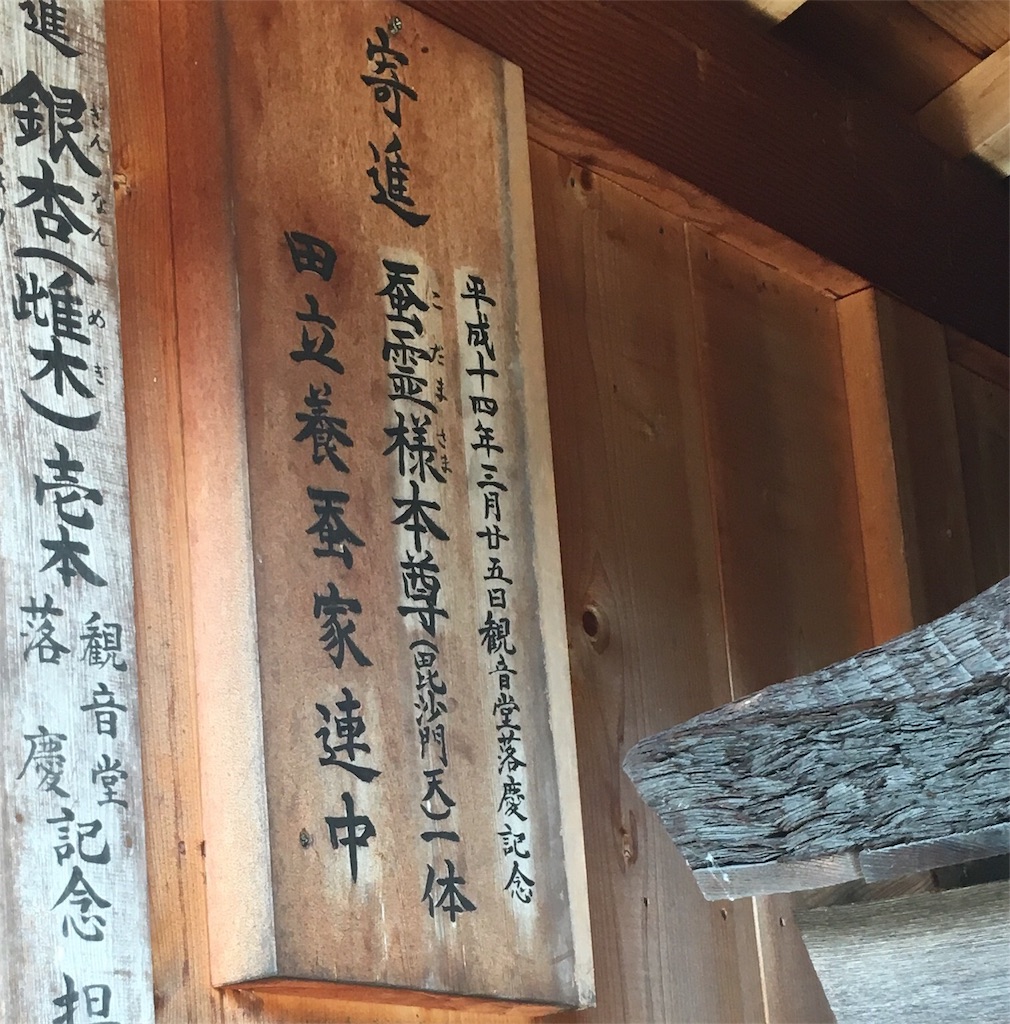 寄進
平成十四年三月廿五日観音堂落慶記念
蚕霊様本尊(毘沙門天)一体
こだまさま
田立養蚕家連中
進 銀杏(雌木)壱本
ぎんなん めぎ
観音堂
落慶
記念